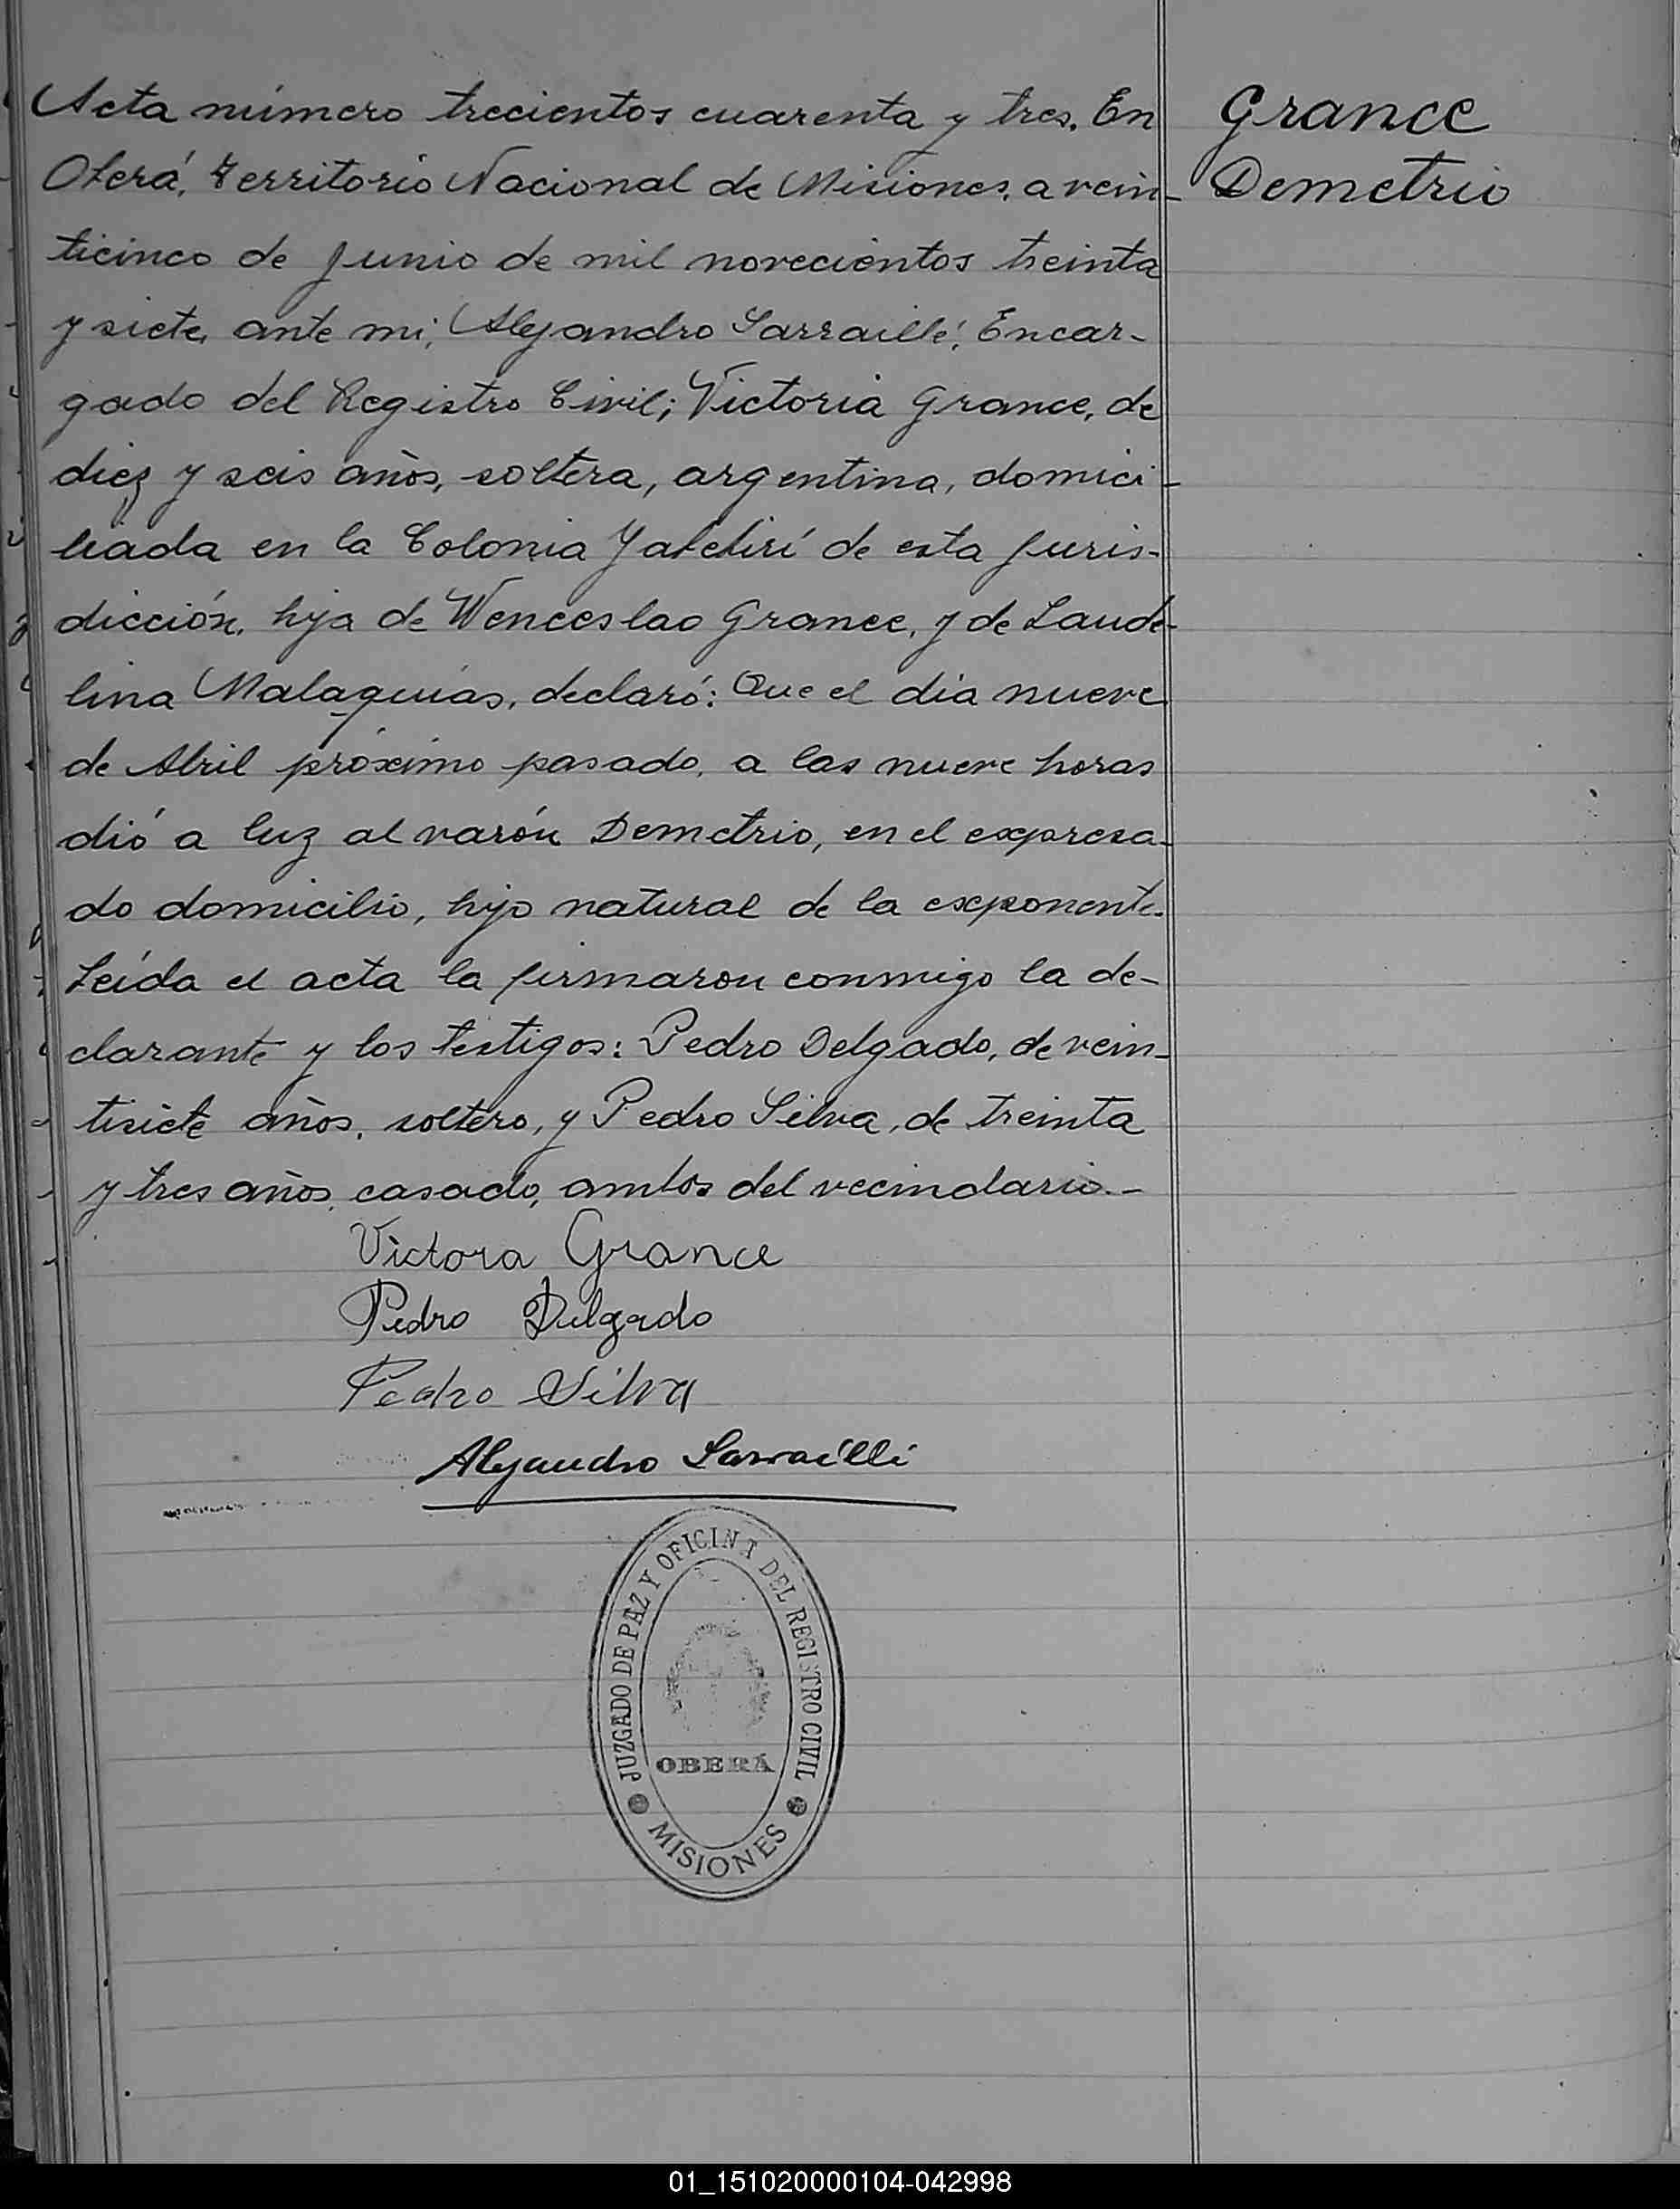 Acta número trecientos cuarenta y tres. En
Oberá, Territorio Nacional de Misiones, a vein-
ticinco de Junio de mil novecientos treinta
y siete, ante mi, Alejandro Sarraillé, Encar-
gado del Registro Civil; Victoria Grance, de
diez y seis años, soltera, argentina, domici-
liada en la Colonia Yabebirí de esta juris-
dicción, hija de Wenceslao Grance, y de Laude-
lina Malaquías, declaró: Que el día nueve
de Abril próximo pasado, a las nueve horas
dió a luz al varón Demetrio, en el expresa-
do domicilio, hijo natural de la exponente.
Leída el acta la firmaron conmigo la de-
clarante y los testigos: Pedro Delgado, de vein-
tisiete años, soltero, y Pedro Silva, de treinta
y tres años, casado, ambos del vecindario.-
Grance
Demetrio
Victora Grance
Pedro Delgado
Pedro Silva
Alejandro Sarraillé
JUZGADO DE PAZ Y OFICINA DEL REGISTRO CIVIL
OBERÁ
MISIONES
01_151020000104-042998